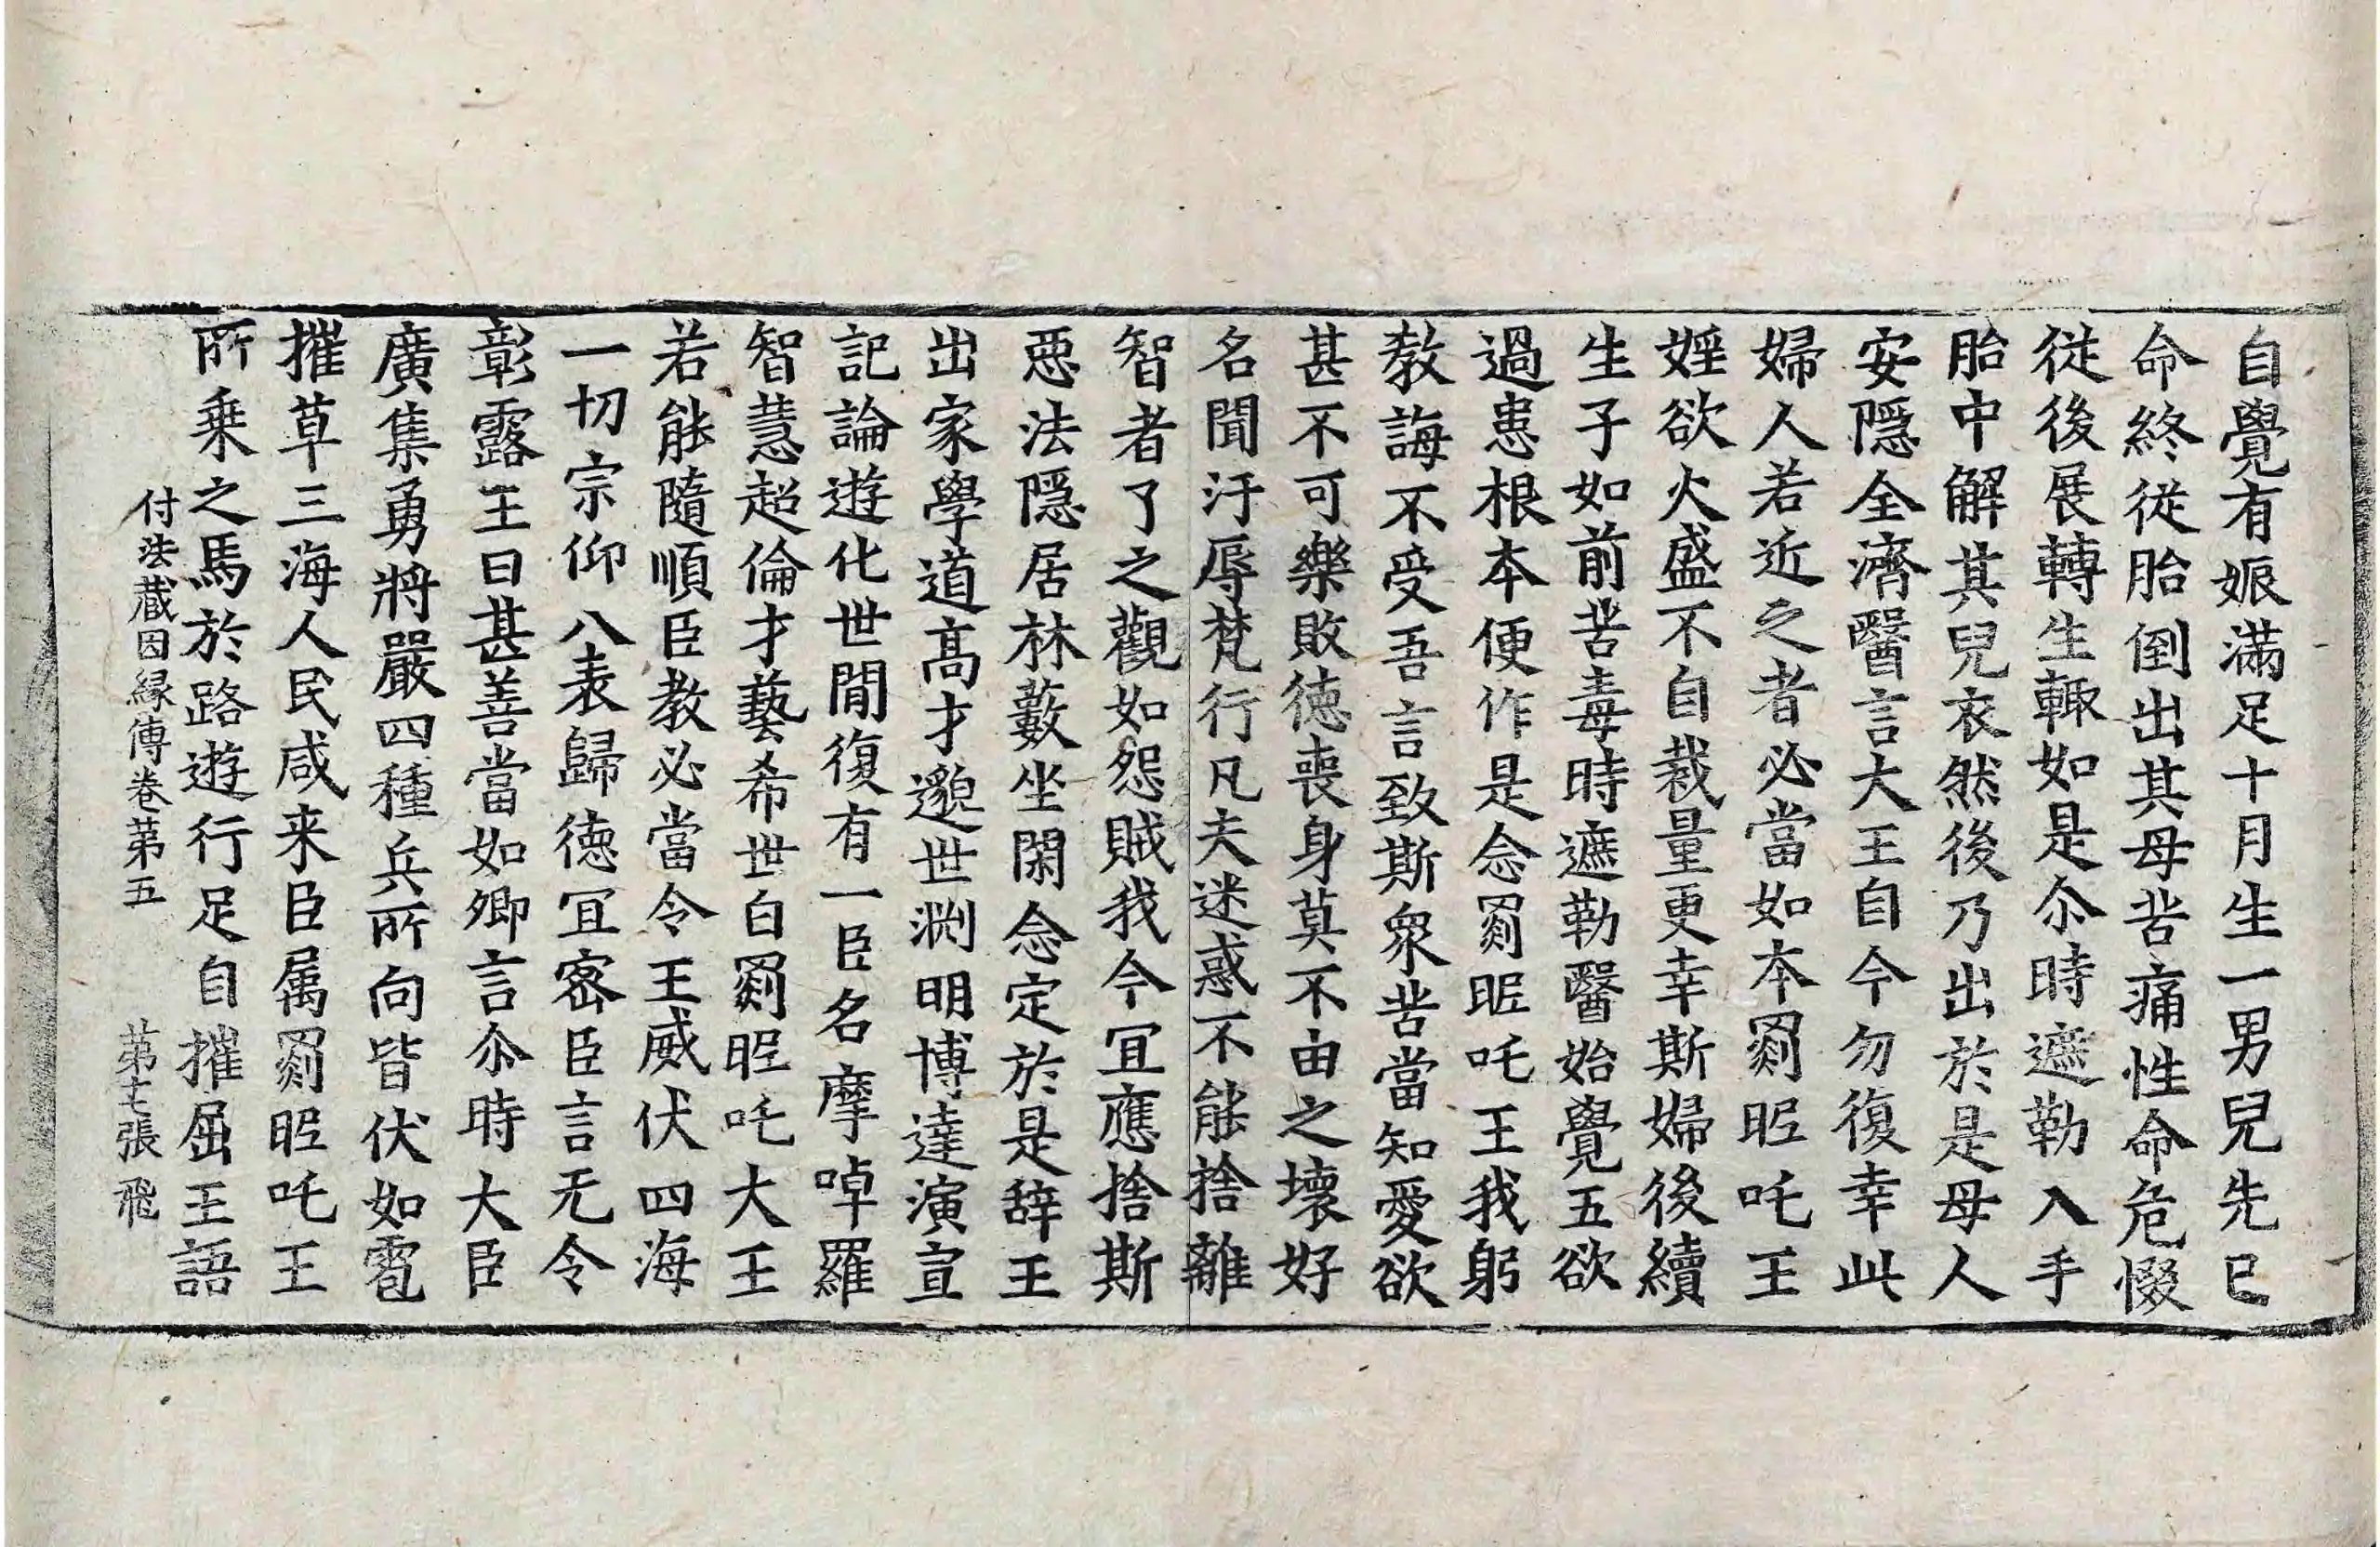 自覺有娠滿足十月生一男兒先已
命終從胎倒出其母苦痛性命危惙
從後展轉生輙如是尒時遮勒入手
胎中解其兒衣然後乃出於是母人
安隱全濟醫言大王自今勿復幸此
婦人若近之者必當如本罽昵吒王
婬欲火盛不自裁量更幸斯婦後續
生子如前苦毒時遮勒醫始覺五欲
過患根本便作是念罽昵吒王我躬
教誨不受吾言致斯衆苦當知愛欲
甚不可樂敗德喪身莫不由之壞好
名聞汙辱梵行凡夫迷惑不能捨離
智者了之觀如怨賊我今冝應捨斯
惡法隱居林藪坐閑念定於是辞王
出家學道髙才邈世渕明博達演宣
記論遊化世閒復有一臣名摩啅羅
智慧超倫才藝希世白罽昵吒大王
若能隨順臣教必當令王威伏四海
一切宗仰八表歸德冝密臣言无令
彰露王曰甚善當如卿言尒時大臣
廣集勇將嚴四種兵所向皆伏如雹
摧草三海人民咸来臣属罽昵吒王
所乗之馬於路遊行足自摧屈王語
付法蔵因縁傳卷苐五 苐七張 飛